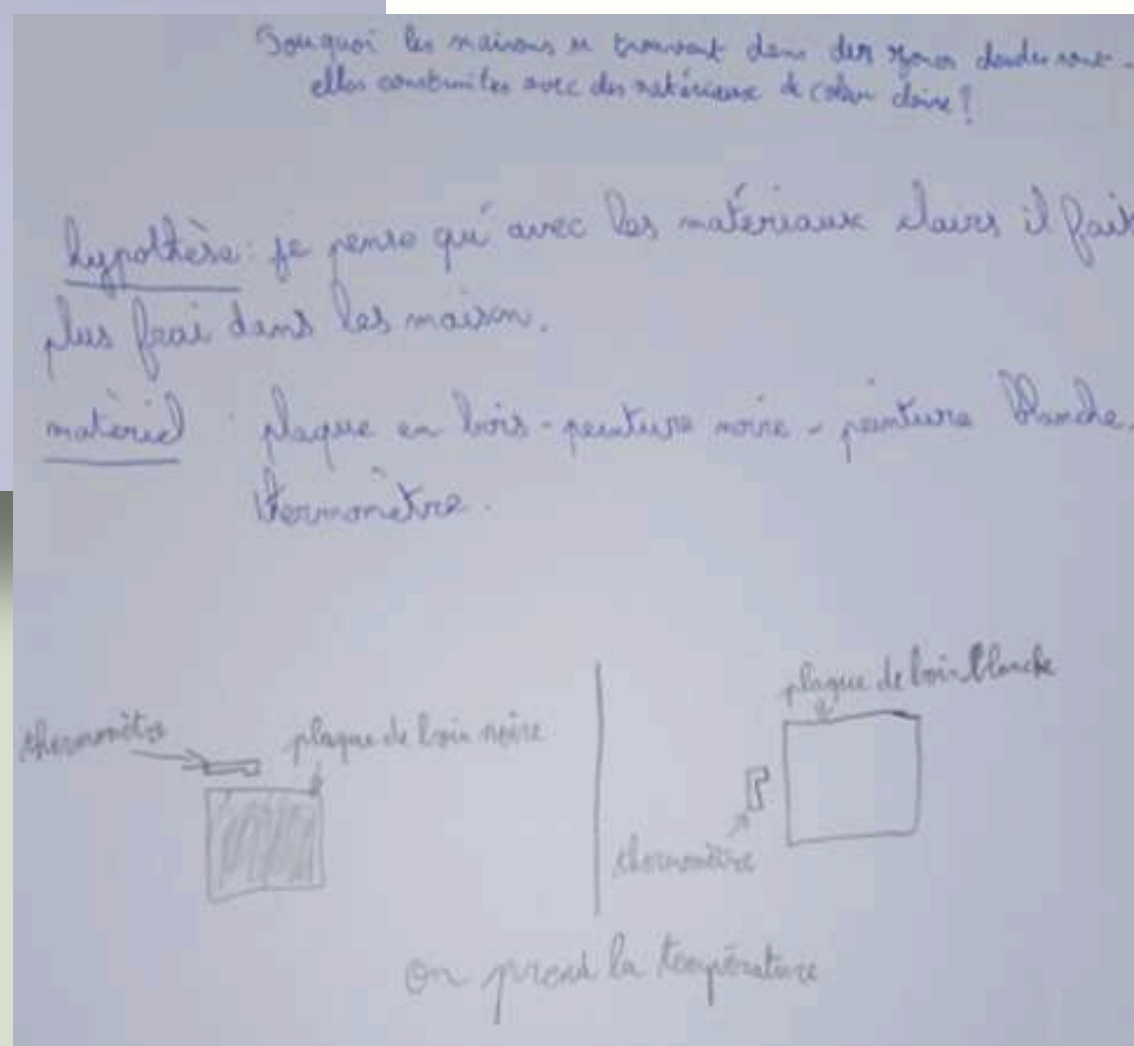 Pourquoi les maisons se trouvant dans des zones chaudes sont-
elles construites avec des matériaux de couleur claire ?
hypothèse : je pense qu'avec les matériaux clairs il fait
plus frai dans les maison.
matériel : plaque en bois - peinture noire - peinture blanche.
thermomètre.
thermomètre
plaque de bois noire
plaque de bois blanche
thermomètre
on prend la température